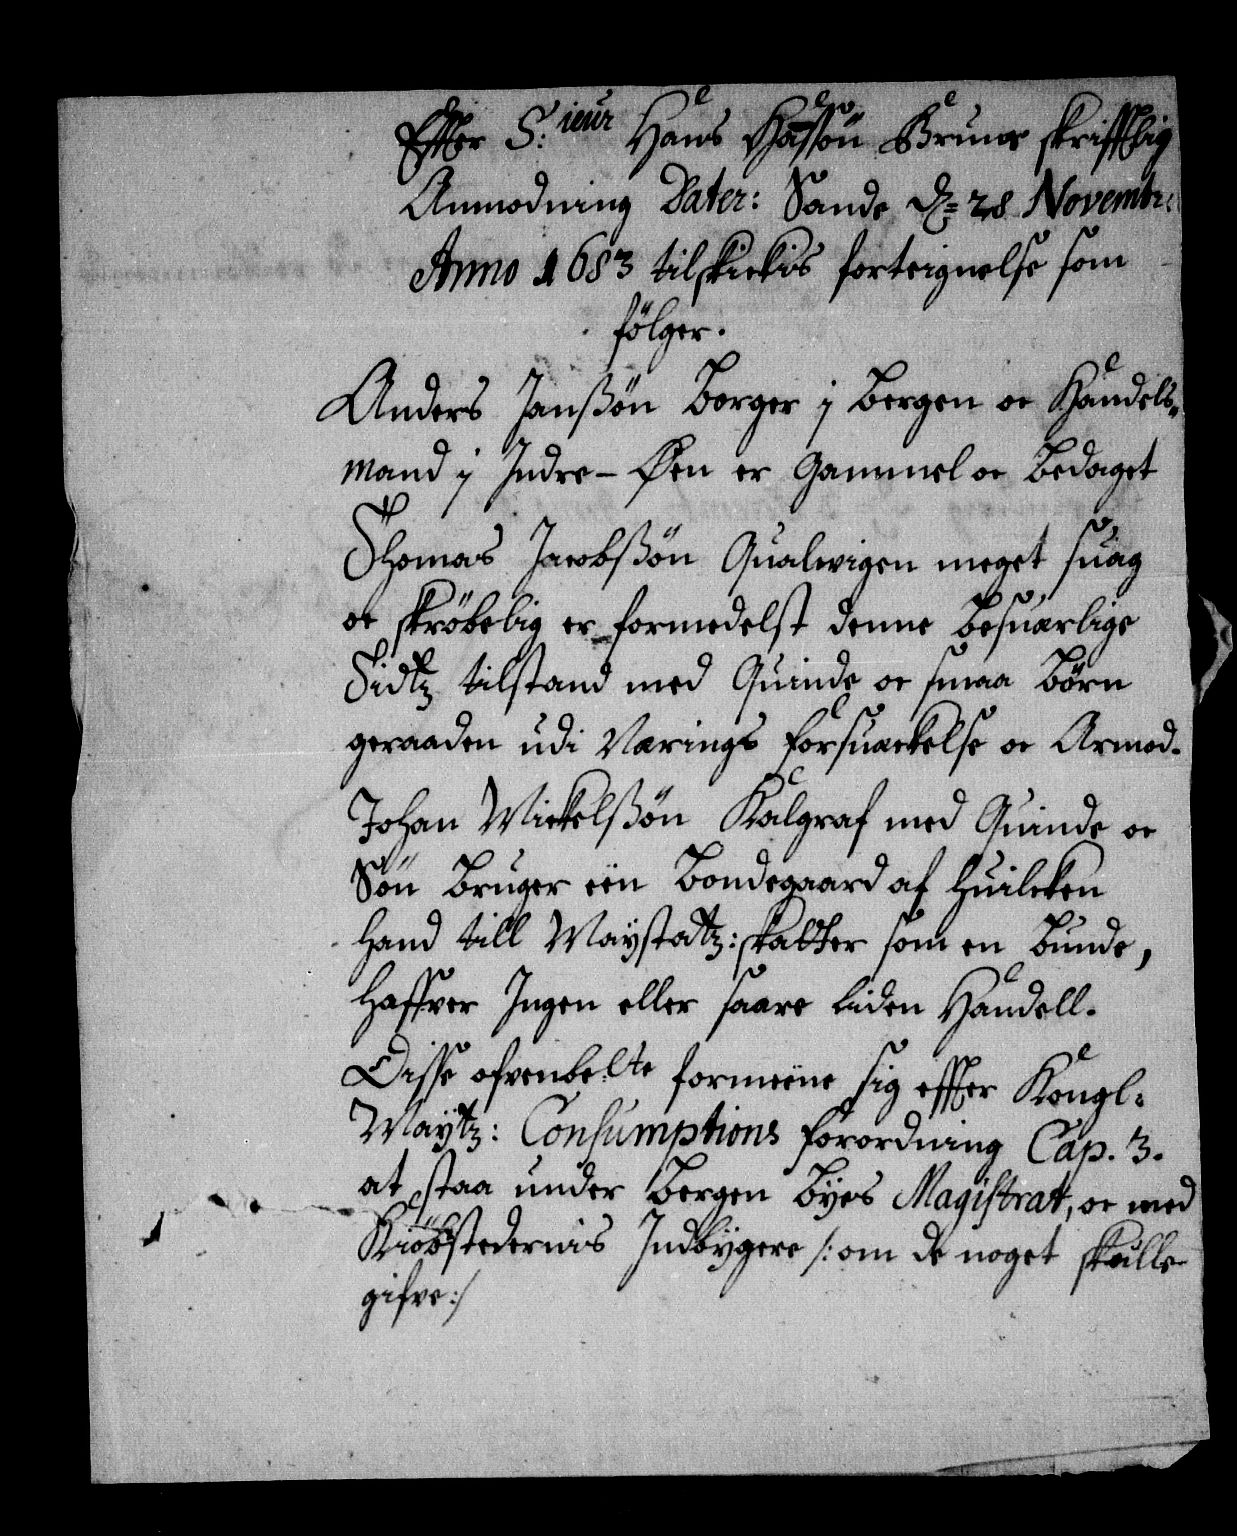 Effter S:ieur Hans Hassøn Bruns skrifftlig
Anmodning Dater: Sande d= 28 Novembr:
Anno 1683 tilskickis forteignelse som
følger.
Anders Janßøn Borger j Bergen oc Handels„
mand j Indre-Øen er Gammel oc bedaget
Thomas Jacobßøn Qualwigen meget suag
oc skrøbelig er formedelst denne besuærlige
Tidtz tilstand med Quinde oc smaa Børn
geraaden udi Nærings forsuæckelse oc Armod.
Johan Mickelßøn Kalgraf med Quinde oc
Søn bruger een Bondegaard af huilcken
hand till Maÿstatz: skatter som en Bunde,
haffver Ingen eller saare liden Handell.
Disse ofvenbelte formeene sig effter Kongl.
Maÿtz: Consumptions forordning Cap. 3.
at staa under Bergen Byes Magistrat, oc med
Kiøbstedernis Indbÿgere /: om de noget skulle
gifve :/